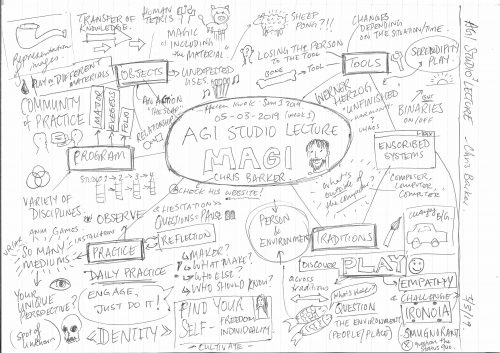 TRANSFER OF
KNOWLEDGE.
HUMAN
TETRIS
SHEEP
PONG?!!
CHANGES
DEPENDING
ON THE SITUATION/TIME.
MAGIC
"INCLUDING
THE MATERIAL"
LOSING THE PERSON
TO THE TOOL
GONE → TOOL
TOOLS
SERENDIPITY
PLAY
representation
images
PLAY w/ DIFFERENT
MATERIALS
OBJECTS
UNEXPECTED
USES.
COMMUNITY
OF PRACTICE
MAJOR
ELECTIVES
FOLIO
AN ACTION
RELATIONSHIP
WERNER
HERZOG
UNFINISHED
CHAOS
BINARIES
ON/OFF
05-03-2019 (WEEK 1)
AGI STUDIO LECTURE
MAGI
CHRIS BARKER
PROGRAM
ENSCRIBED
SYSTEMS
COMPUTER
COMPUTER
COMPUTER
STUDIO 1 → 2 → 3 → 4
CHECK HIS WEBSITE!
what's
outside of
the computer?
VARIETY OF
DISCIPLINES
OBSERVE
HESITATION
QUESTIONS = PAUSE
REFLECTION
PERSON
&
ENVIRONMENT
TRADITIONS
SO MANY
MEDIUMS
PRACTICE
DAILY PRACTICE
MAKER?
WHAT MAKE?
WHO ELSE?
WHO SHOULD KNOW?
DISCOVER
PLAY
across
traditions
EMPATHY
CHALLENGE
IRONOIA
SMUGNORANT
question the
status quo.
YOUR
UNIQUE
PERSPECTIVE?
ENGAGE,
JUST DO IT!
FIND YOUR
SELF-
FREEDOM
INDIVIDUALITY.
- CULTIVATE -
QUESTION
THE ENVIRONMENT
(PEOPLE/PLACE)
spot of
unknown
IDENTITY
AGI STUDIO LECTURE - Chris Barker.
5/3/19